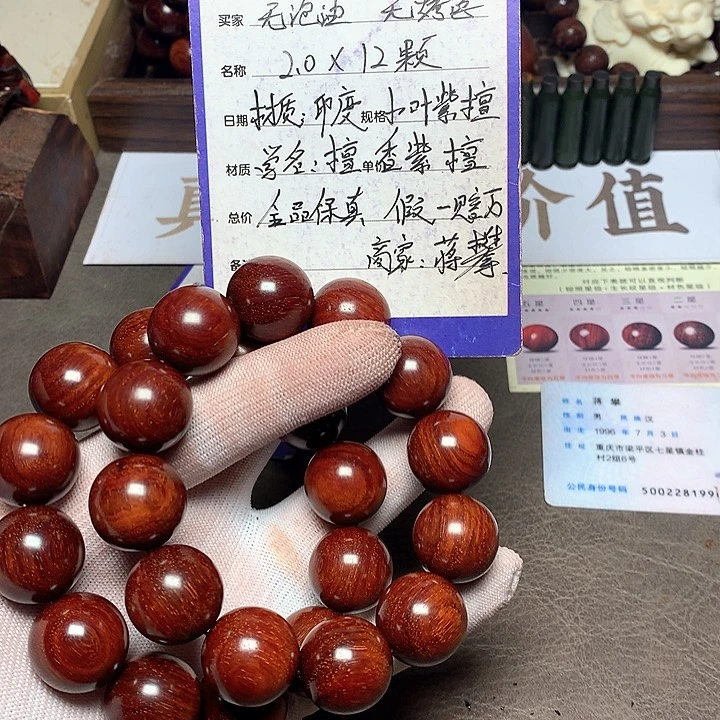 买家 无泡油 无烤色
名称 2.0 X 12颗
日期 材质:印度 规格 小叶紫檀
材质 学名:檀 单价 香紫檀
总价 全品保真 假一赔万
商家:蒋攀
价值
对应下表就可以直观判断
五星 四星 三星 二星
姓名 蒋攀
性别 男 民族 汉
出生 1996 年 7 月 3 日
住址 重庆市梁平区七星镇金柱
村2组6号
公民身份号码 500228199